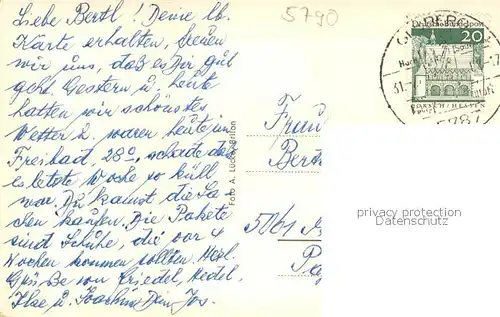 5790
Liebe Bertl! Deine lb.
Karte erhalten, freuen
wir uns, daß es Dir gut
geht. Gestern u. heute
hatten wir schönstes
Wetter u. waren heute im
Freibad, 28°, schade daß
es letzte Woche so kühl
war. Du kannst die Sa-
chen kaufen. Die Pakete
sind Schuhe, die vor 4
Wochen kommen sollten. Herzl.
Grüße von Friedel, Hedel,
Ilse u. Joachim, Dein Jos.
Foto A. Lücke, Brilon
Deutsche Bundespost
20
LORSCH/HESSEN
31.
-17
5787
Frau
Berth
privacy protection
Datenschutz